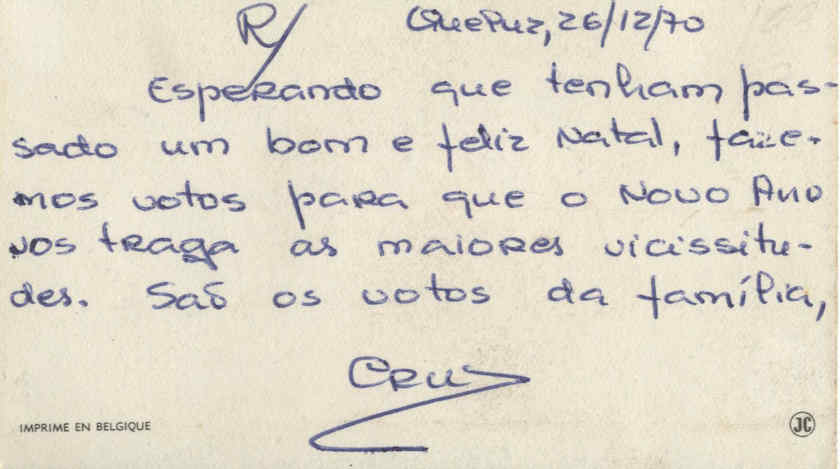 R/ Queluz, 26/12/70
Esperando que tenham pas-
sado um bom e feliz Natal, faze-
mos votos para que o Novo Ano
vos traga as maiores vicissitu-
des. Saõ os votos da família,
Cruz
IMPRIME EN BELGIQUE
JC